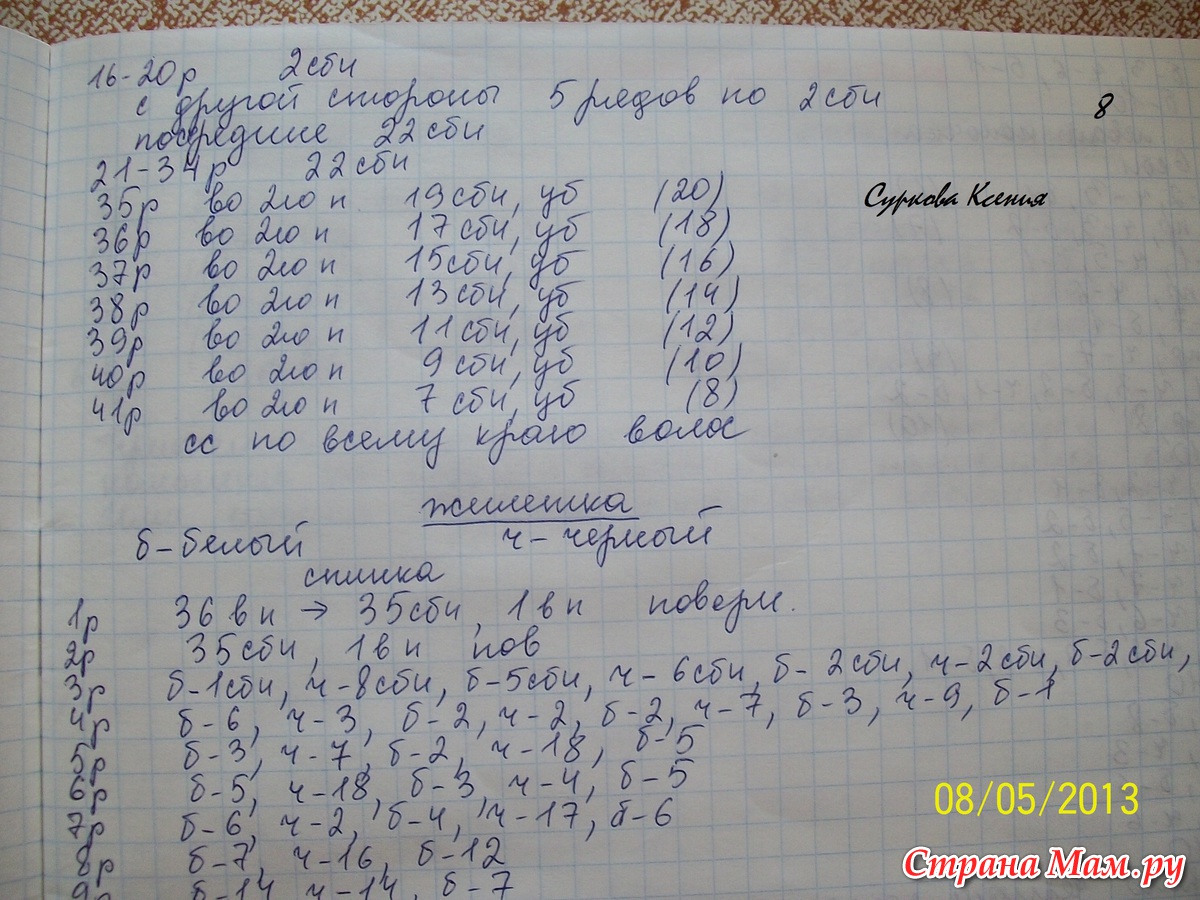 16-20р 2сби
с другой стороны 5 рядов по 2сби
посредине 22сби
8
21-34р 22сби
35р во 2ю п 19сби, уб (20)
Суркова Ксения
36р во 2ю п 17сби, уб (18)
37р во 2ю п 15сби, уб (16)
38р во 2ю п 13сби, уб (14)
39р во 2ю п 11сби, уб (12)
40р во 2ю п 9сби, уб (10)
41р во 2ю п 7сби, уб (8)
сс по всему краю волос
жилетка
б-белый ч-черный
спинка
1р 36 вп → 35сби, 1вп поверн.
2р 35сби, 1вп пов
3р б-1сби, ч-8сби, б-5сби, ч-6сби, б-2сби, ч-2сби, б-2сби,
4р б-6, ч-3, б-2, ч-2, б-2, ч-7, б-3, ч-9, б-1
5р б-3, ч-7, б-2, ч-18, б-5
6р б-5, ч-18, б-3, ч-4, б-5
7р б-6, ч-2, б-4, ч-17, б-6
8р б-7, ч-16, б-12
9р б-14, ч-14, б-7
08/05/2013
Страна Мам.ру